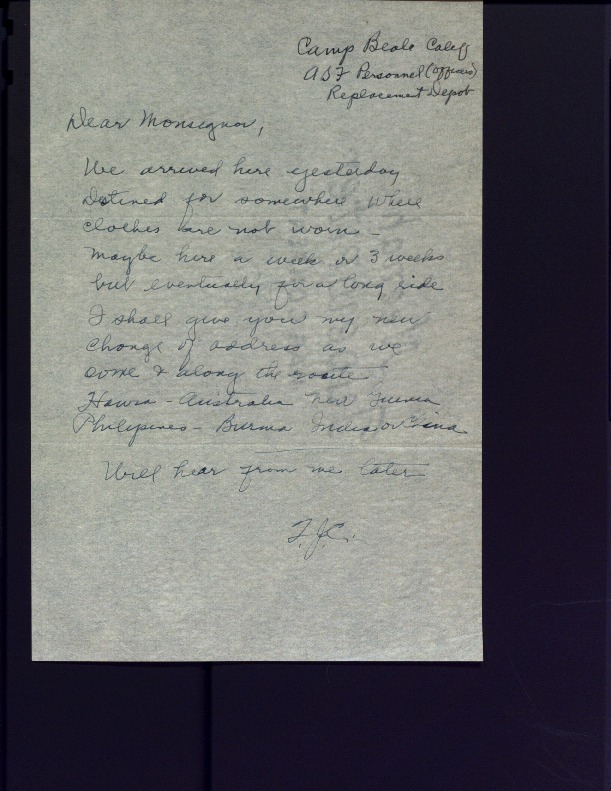 Camp Beale Calif
ASF Personnel (Officers)
Replacement Depot
Dear Monsignor,
We arrived here yesterday
Destined for somewhere where
clothes are not worn -
Maybe here a week or 3 weeks
but eventually for a long ride
I shall give you my new
change of address as we
come & along the route
Philipines - Burma India or China
Will hear from me later
F.J.C.